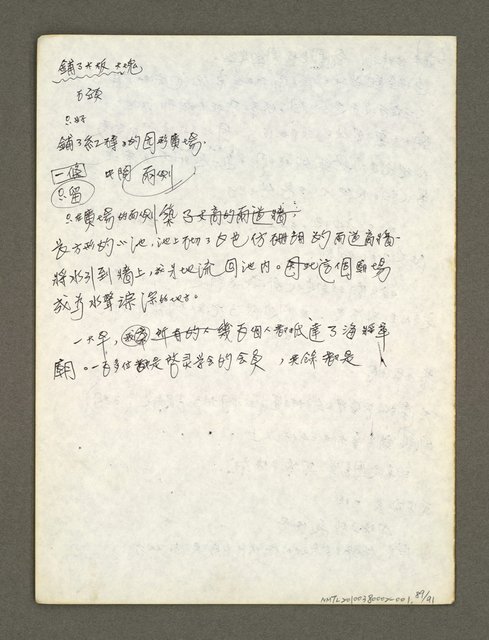 鋪了大板 大塊
石頭
只好
鋪了紅磚的因形廣場.
一個 中間 兩側
只留
只在廣場的兩側築了丈高的兩道牆.
長方形的水池,池上砌了白色仿珊瑚的兩道高牆.
將水引到牆上,成為地流回池內。因此這個廣場
成為水聲淙淙的地方。
一大早, 所有的人幾百個人都抵達了海將軍
廟。一百多位都是啓灵学会的会員,其餘都是
NMTL20100380002-001. 89/91